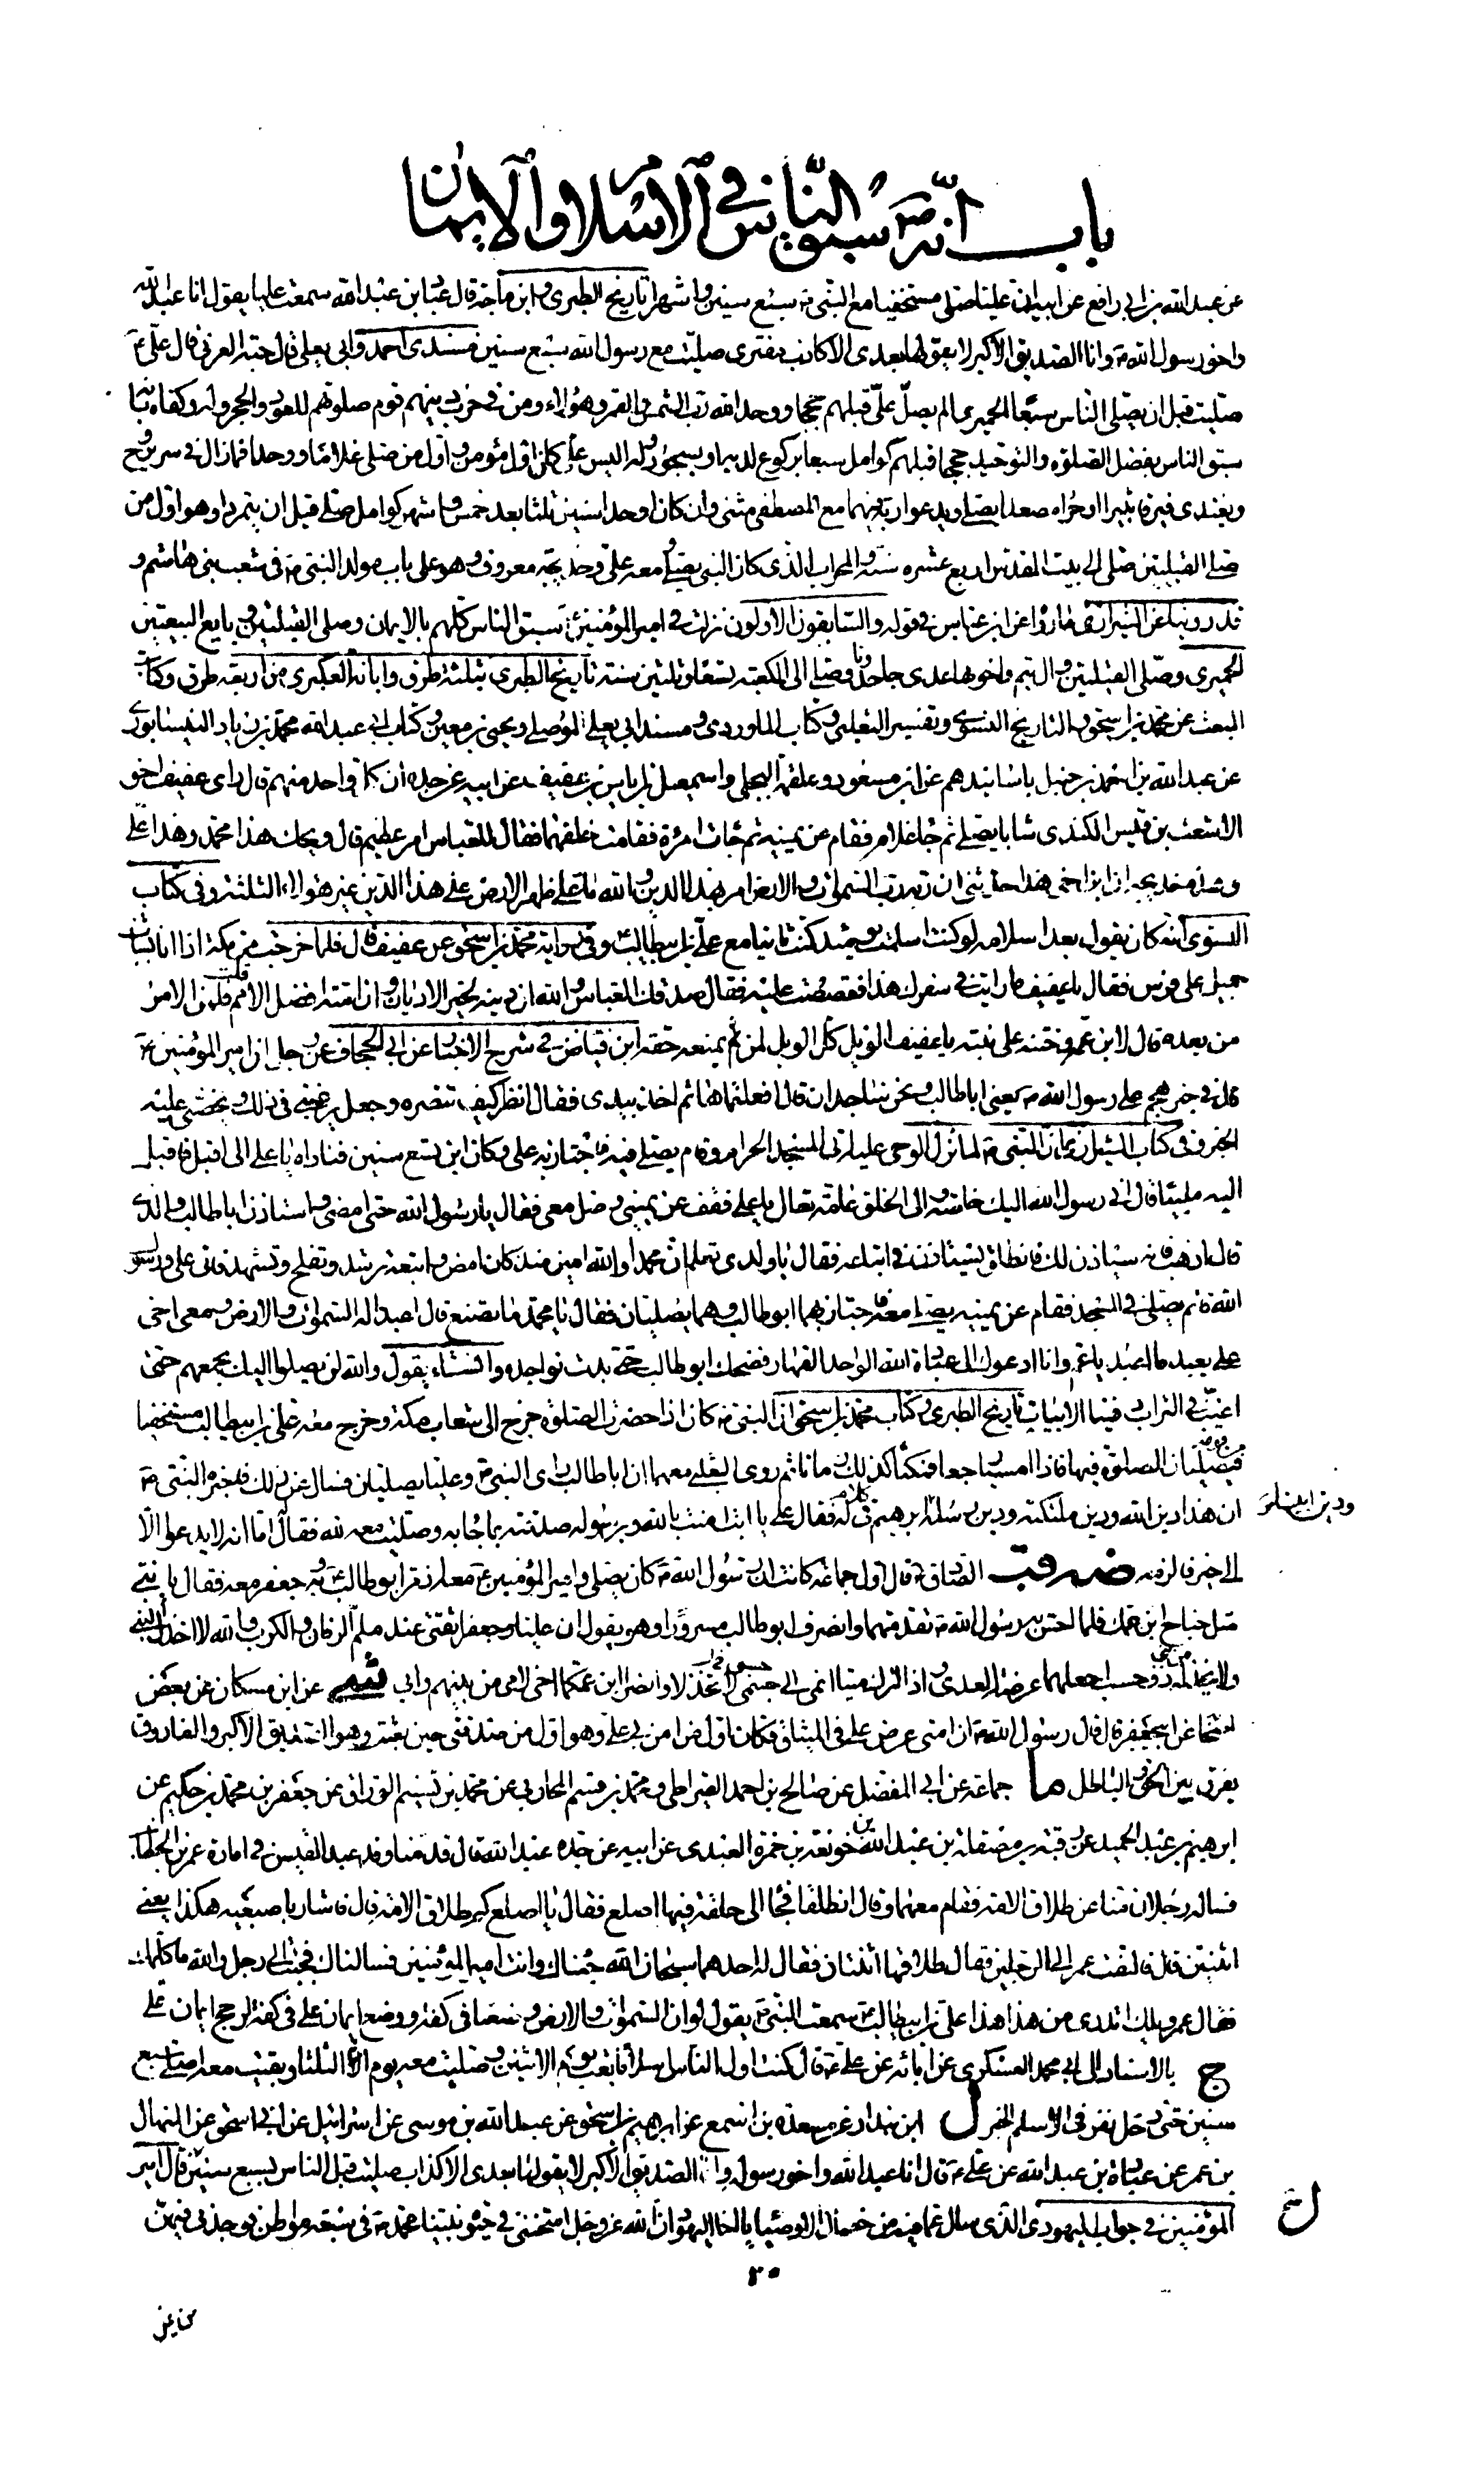 باب انّه ص سبق النّاس في الاسلام والايمان
عن عبد الله بن ابي رافع عن ابيه ان عليا صلى مستخفيا مع النبى ص سبع سنين واشهرا تاريخ الطبرى وابن ماجة قال عباد بن عبد الله سمعت عليا يقول انا عبد الله
واخو رسول الله ص وانا الصديق الاكبر لا يقولها بعدى الا كاذب مفترى صليت مع رسول الله سبع سنين مسندى احمد وابى يعلى قال حبة العرنى قال على ع
صليت قبل ان يصلى الناس سبعا الحميرى الم يصل على قبلهم حججا ووحد الله رب الشمس والقمر وهؤلاء ومن فى حزب دينهم قوم صلوتهم للعود والحجر وله وكفاه بانه
سبق الناس بفضل الصلوة والتوحيد حججا قبلهم كوامل سبعا بركوع لديه او بسجود وله اليس على كان اول مؤمن واول من صلى غلاما ووحدا فما زال فى سر يروح
ويغتدى فيرقا ثبيرا او حراء مصعدا يصلى ويدعو ربه فهما به مع المصطفى مثنى وان كان اوحدا سنين ثلثا بعد خمس واشهر كوامل صلى قبل ان يتمردا وهو اول من
صلى القبلتين صلى الى بيت المقدس اربع عشره سنة والمحراب الذى كان النبى يصلى ومعه على وخديجة معروف وهو على باب مولد النبى ص فى شعب بنى هاشم و
قد روينا عن الشيرازى ما رواه عن ابن عباس فى قوله والسابقون الاولون نزلت فى امير المؤمنين ع سبق الناس كلهم بالايمان وصلى القبلتين وبايع البيعتين
الحميرى وصلى القبلتين وال تيم واخوتها عدى جاحدونا وصلى الى الكعبة تسعا وثلثين سنة تاريخ الطبرى بثلثة طرق وابانة العكبرى من اربعة طرق وكتاب
المبعث عن محمد بن اسحق والتاريخ النسوى وتفسير الثعلبى وكتاب الماوردى ومسند ابى يعلى الموصلى ويحيى بن معين وكتاب ابى عبد الله محمد بن زياد النيسابورى
عن عبد الله بن احمد بن حنبل باسانيدهم عن ابن مسعود وعلقمة البجلى واسمعيل بن اياس بن عفيف عن ابيه عن جده ان كل واحد منهم قال راى عفيف اخو
الاشعث بن قيس الكندى شابا يصلى ثم جا غلام فقام عن يمينه ثم جاءت امرئة فقامت خلفهما فقال للعباس امر عظيم قال ويحك هذا محمد وهذا على
وهذه خديجه ان ابن اخى هذا حدثنى ان ربه رب السموات والارض امره بهذا الدين والله ما على ظهر الارض على هذا الدين غير هؤلاء الثلثة وفى كتاب
النسوى انه كان يقول بعد اسلامه لو كنت اسلمت يومئذ كنت ثانيا مع على بن ابيطالب ع وفى رواية محمد بن اسحق عن عفيف قال فلما خرجت من مكة اذا انا بشاب
جميل على فرس فقال يا عفيف ما رايت فى سفرك هذا فقصصت عليه فقال صدقك العباس والله ان دينه لخير الاديان وان امته افضل الامم قلت فلمن الامر
من بعده قال لابن عمه وختنه على بنته يا عفيف الويل كل الويل لمن يمنعه حقه ابن فياض فى شرح الاخبار عن ابى الجحاف عن رجل ان امير المؤمنين ع
قال فى خبر هجم على رسول الله ص يعنى ابا طالب ونحن ساجدان قال افعلتماها ثم اخذ بيدى فقال انظر كيف تنصره وجعل يرغبنى فى ذلك ويحضنى عليه
الخبر وفى كتاب الشيرازى ان النبى ص لما نزل الوحى عليه اتى المسجد الحرام وقام يصلى فيه فاجتاز به على وكان ابن تسع سنين فناداه يا على الى اقبل فاقبل
اليه ملبيا قال انى رسول الله اليك خاصة والى الخلق عامة تعال يا على فقف عن يمينى وصل معى فقال يا رسول الله حتى امضى واستاذن ابا طالب والدى
قال اذهب فانه سياذن لك فانطلق يستاذنه فى اتباعه فقال يا ولدى تعلم ان محمدا والله امين منذ كان امض واتبعه ترشد وتفلح وتشهد فاتى على ورسول
الله قائم يصلى فى المسجد فقام عن يمينه يصلى معه فاجتاز بهما ابو طالب وهما يصليان فقال يا محمد ما تصنع قال اعبد اله السموات والارض ومعى اخى
على يعبد ما اعبد يا عم وانا ادعوك الى عبادة الله الواحد القهار فضحك ابو طالب حتى بدت نواجده وانشاء يقول والله لن يصلوا اليك بجمعهم حتى
اغيب فى التراب دفينا الابيات تاريخ الطبرى وكتاب محمد بن اسحق ان النبى ص كان اذا حضرت الصلوة خرج الى شعاب مكة وخرج معه على بن ابيطالب مستخفيا
من قومه
فيصليان الصلوة فيها فاذا امسيا رجعا فمكثا كذلك زمانا ثم روى الثعلبى معهما ان ابا طالب راى النبى وعليا يصليان فسال عن ذلك فاخبره النبى ص
ودين ابينا
ان هذا دين الله ودين ملئكته ودين رسله ابرهيم فى كلام له فقال على يا ابت امنت بالله وبرسوله وصدقته بما جاء به وصليت معه لله فقال له اما انه لا يدعو الا
الى خير فالزمه الصادق ع قال اول جماعة كانت ان رسول الله ص كان يصلى وامير المؤمنين ع معه اذ مر ابو طالب به وجعفر معه فقال يا بنى
صل جناح ابن عمك فلما احس به رسول الله ص تقدمهما وانصرف ابو طالب مسرورا وهو يقول ان عليا وجعفرا ثقتى عند ملم الزمان والكرب والله لا اخذل النبى
ولا يخذله من بنى ذو حسب اجعلهما عرضة العدى واذ اترك ميتا انمى الى حسبى لا تخذلا وانصرا ابن عمكما اخى لامى من بينهم وابى عن ابن مسكان عن بعض
اصحابنا عن ابيجعفر ع قال قال رسول الله ص ان امتى عرض على فى الميثاق فكان اول من امن بى على وهو اول من صدقنى حين بعثت وهو الصديق الاكبر والفاروق
يفرق بين الحق والباطل ما جماعة عن ابى المفضل عن صالح بن احمد القيراطى ومحمد بن قسم المحاربى عن محمد بن تسنيم الوراق عن جعفر بن محمد بن حكيم عن
ابرهيم بن عبد الحميد عن رقبة بن مصقلة بن عبد الله بن خوتعة بن حمزة العبدى عن ابيه عن جده عبد الله قال قدمنا وفد عبد القيس فى امارة عمر بن الخطاب
فساله رجلان منا عن طلاق الامة فقام معهما وقال انطلقا فجا الى حلقة فيها اصلع فقال يا اصلع كم طلاق الامة قال فاشار باصبعيه هكذا يعنى
اثنتين قال فالتفت عمر الى الرجلين فقال طلاقها اثنتان فقال له احدهما سبحان الله جئناك وانت امير المؤمنين فسالناك فجئت الى رجل والله ما كلمك
فقال عمر ويلك اتدرى من هذا هذا على بن ابيطالب ع سمعت النبى ص يقول لو ان السموات والارض وضعتا فى كفة ووضع ايمان على فى كفة لرجح ايمان على
ج بالاسناد الى ابى محمد العسكرى عن ابائه عن على ع قال كنت اول الناس اسلاما بعث يوم الاثنين وصليت معه يوم الثلثا وبقيت معه اصلى سبع
سنين حتى دخل نفر فى الاسلام الخبر ل ابن بندار عن مسعدة بن اسمع عن ابرهيم بن اسحق عن عبد الله بن موسى عن اسرائيل عن ابى اسحق عن المنهال
بن عمر عن عباد بن عبد الله عن على ع قال انا عبد الله واخو رسوله وانا الصديق الاكبر لا يقولها بعدى الا كذاب صليت قبل الناس بسبع سنين قال امير
المؤمنين فى جواب اليهودى الذى سال عما فيه من خصال الاوصيا يا اخا اليهود ان الله عز وجل امتحننى فى حيوة نبينا محمد ص فى سبعة مواطن فوجدنى فيهن
ل
٢٠